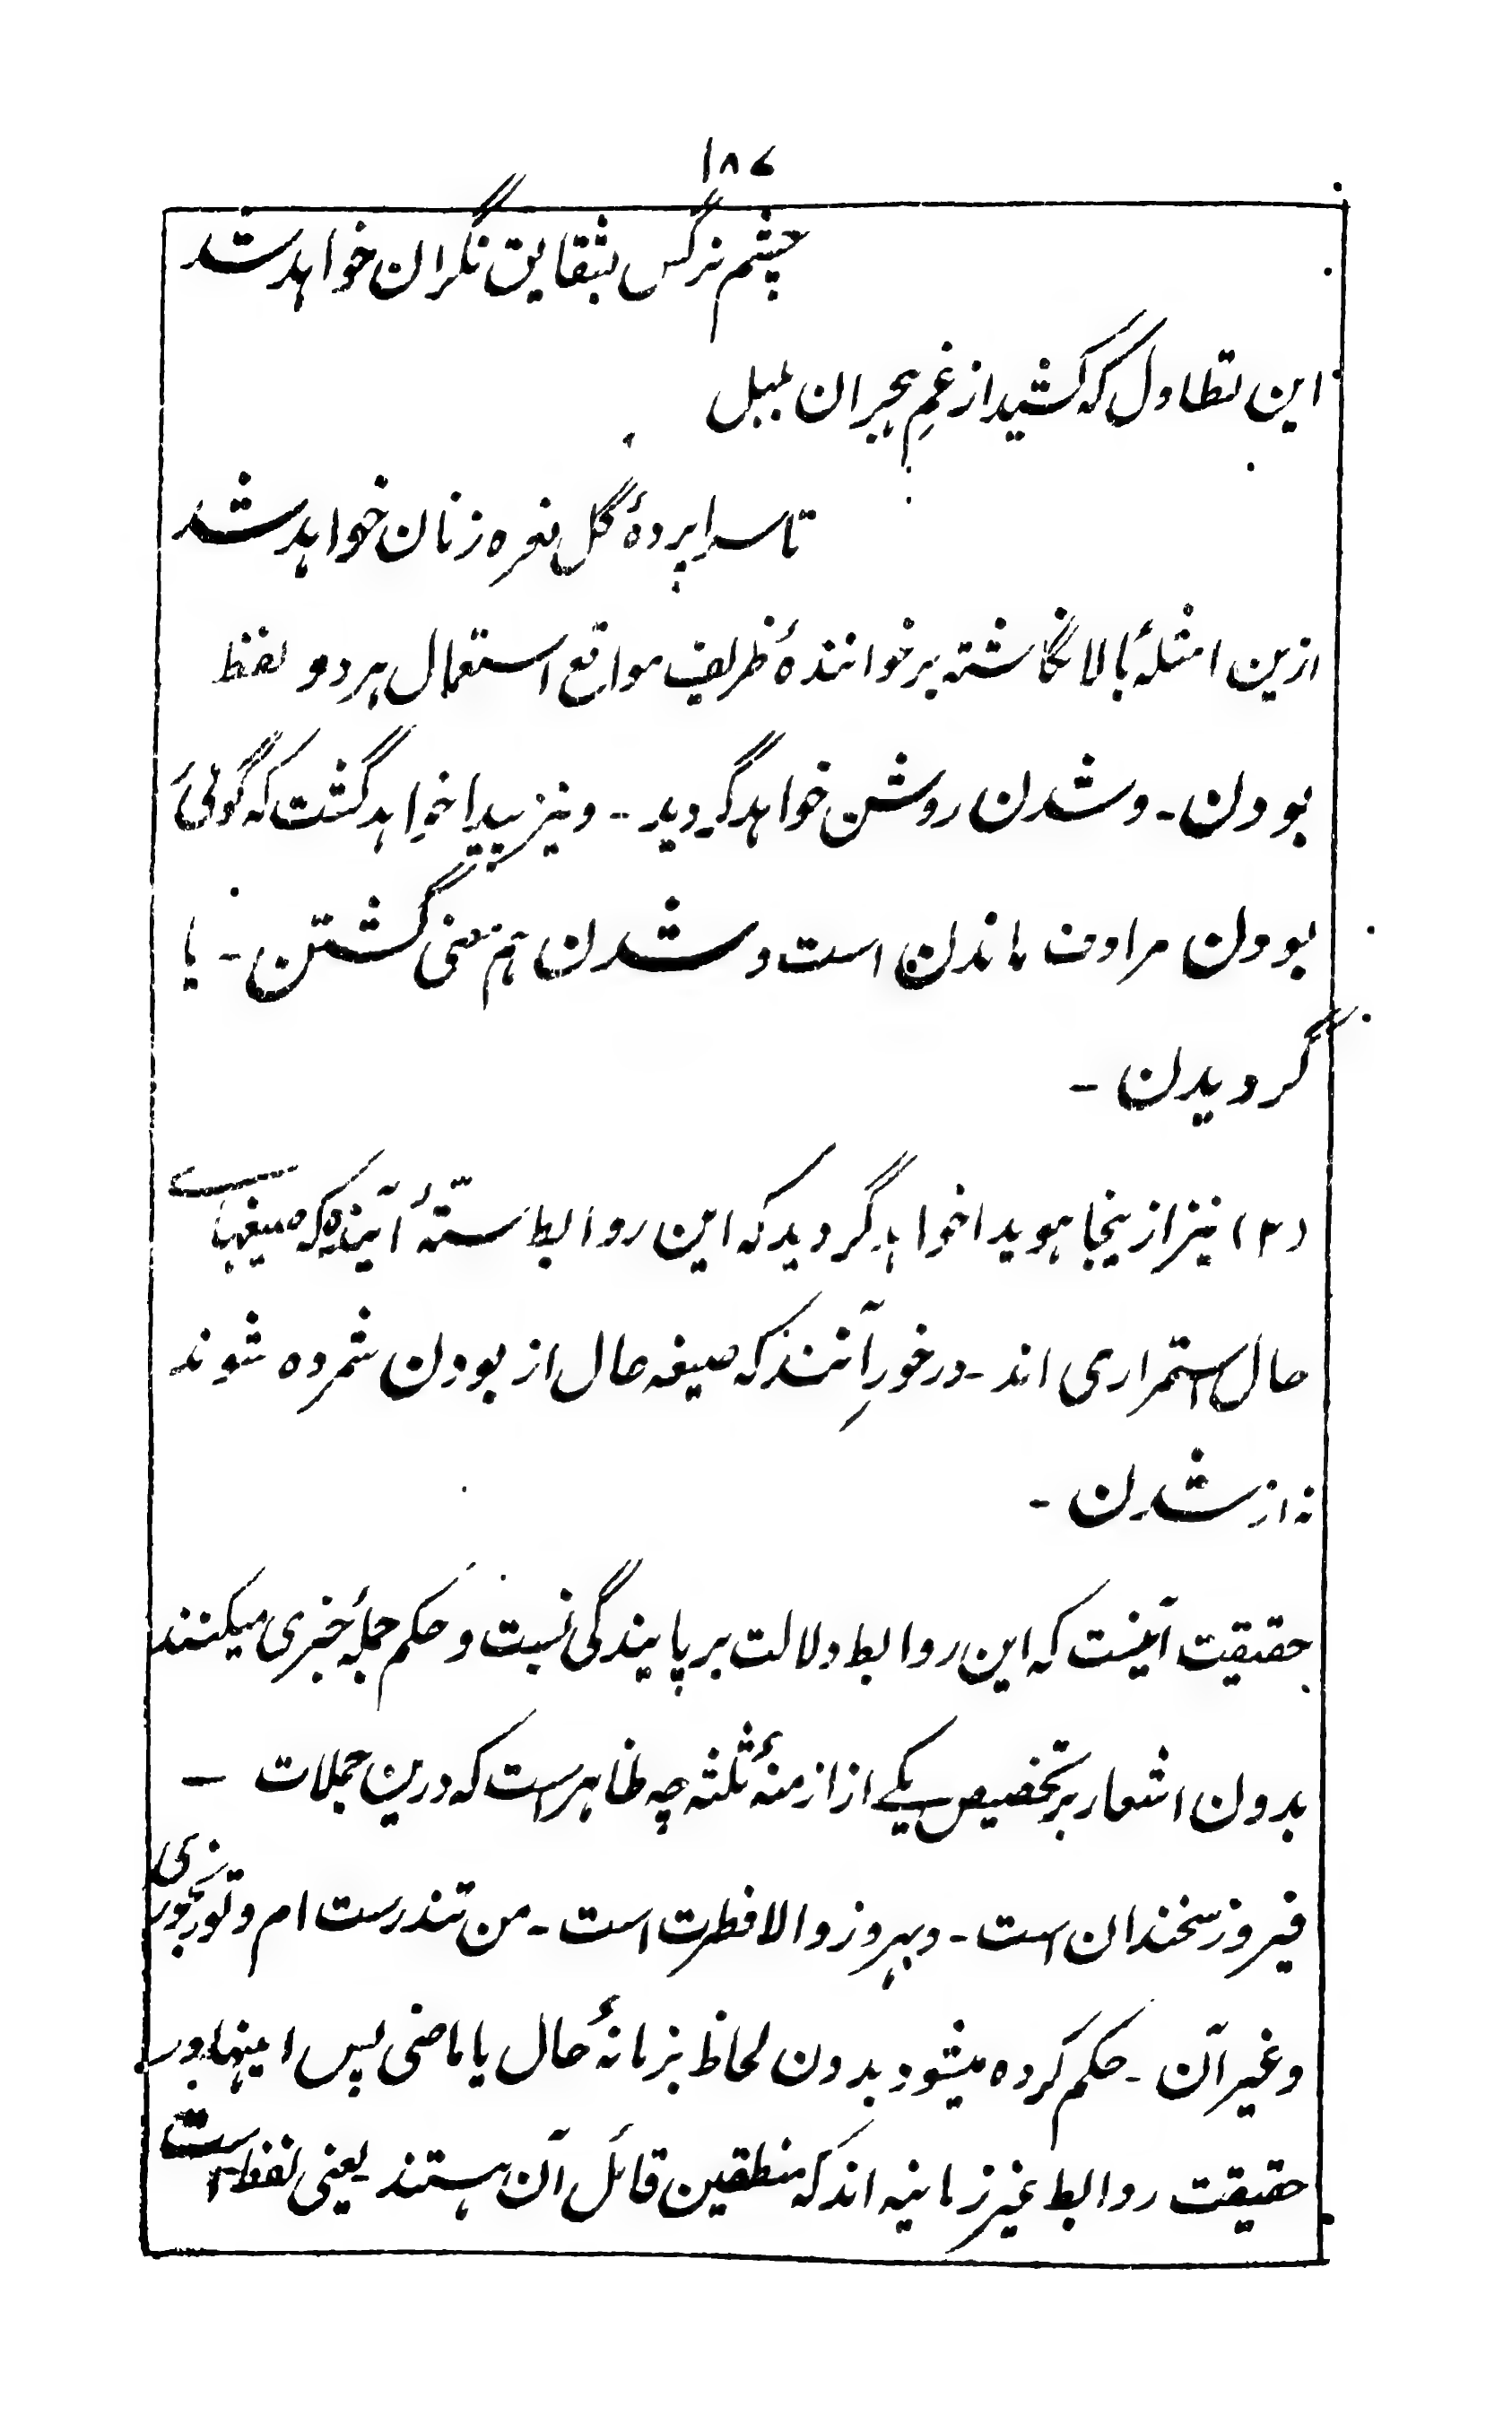 ۱۸۷
چشم نرگس بشقایق نگران خواهد شد
این تطاول که کشید از غمِ هجران بلبل
تا سراپردهٔ گل نعره زنان خواهد شد
ازین امثلهٔ بالا نگاشته بر خوانندهٔ ظریف مواقع استعمال هر دو لفظ
بودن - و شدن روشن خواهد گردید - و نیز پیدا خواهد گشت که گوئی
بودن مرادف ماندن است و شدن هم معنی گشتن - یا
گردیدن -
(۲) نیز ازینجا هویدا خواهد گردید که این روابط ستّهٔ آتینده که صیغهای
حال استمراری اند - درخورِ آنند که صیغه حال از بودن شمرده شوند
نه از شدن -
حقیقت آنیست که این روابط دلالت بر پایندگی نسبت و حکم جملهٔ خبری میکنند
بدون اشعار بر تخصیص یکے از ازمنهٔ ثلثه چه ظاهر است که درین جملات -
فیروز سخندان است - و بهروز والا فطرت است - من تندرست ام و تو رنجوری
و غیر آن - حکم کرده میشود بدون لحاظ بزمانهٔ حال یا ماضی پس اینها در
حقیقت روابط غیر زمانیه اند که منطقین قائل آن هستند یعنی لفظ است